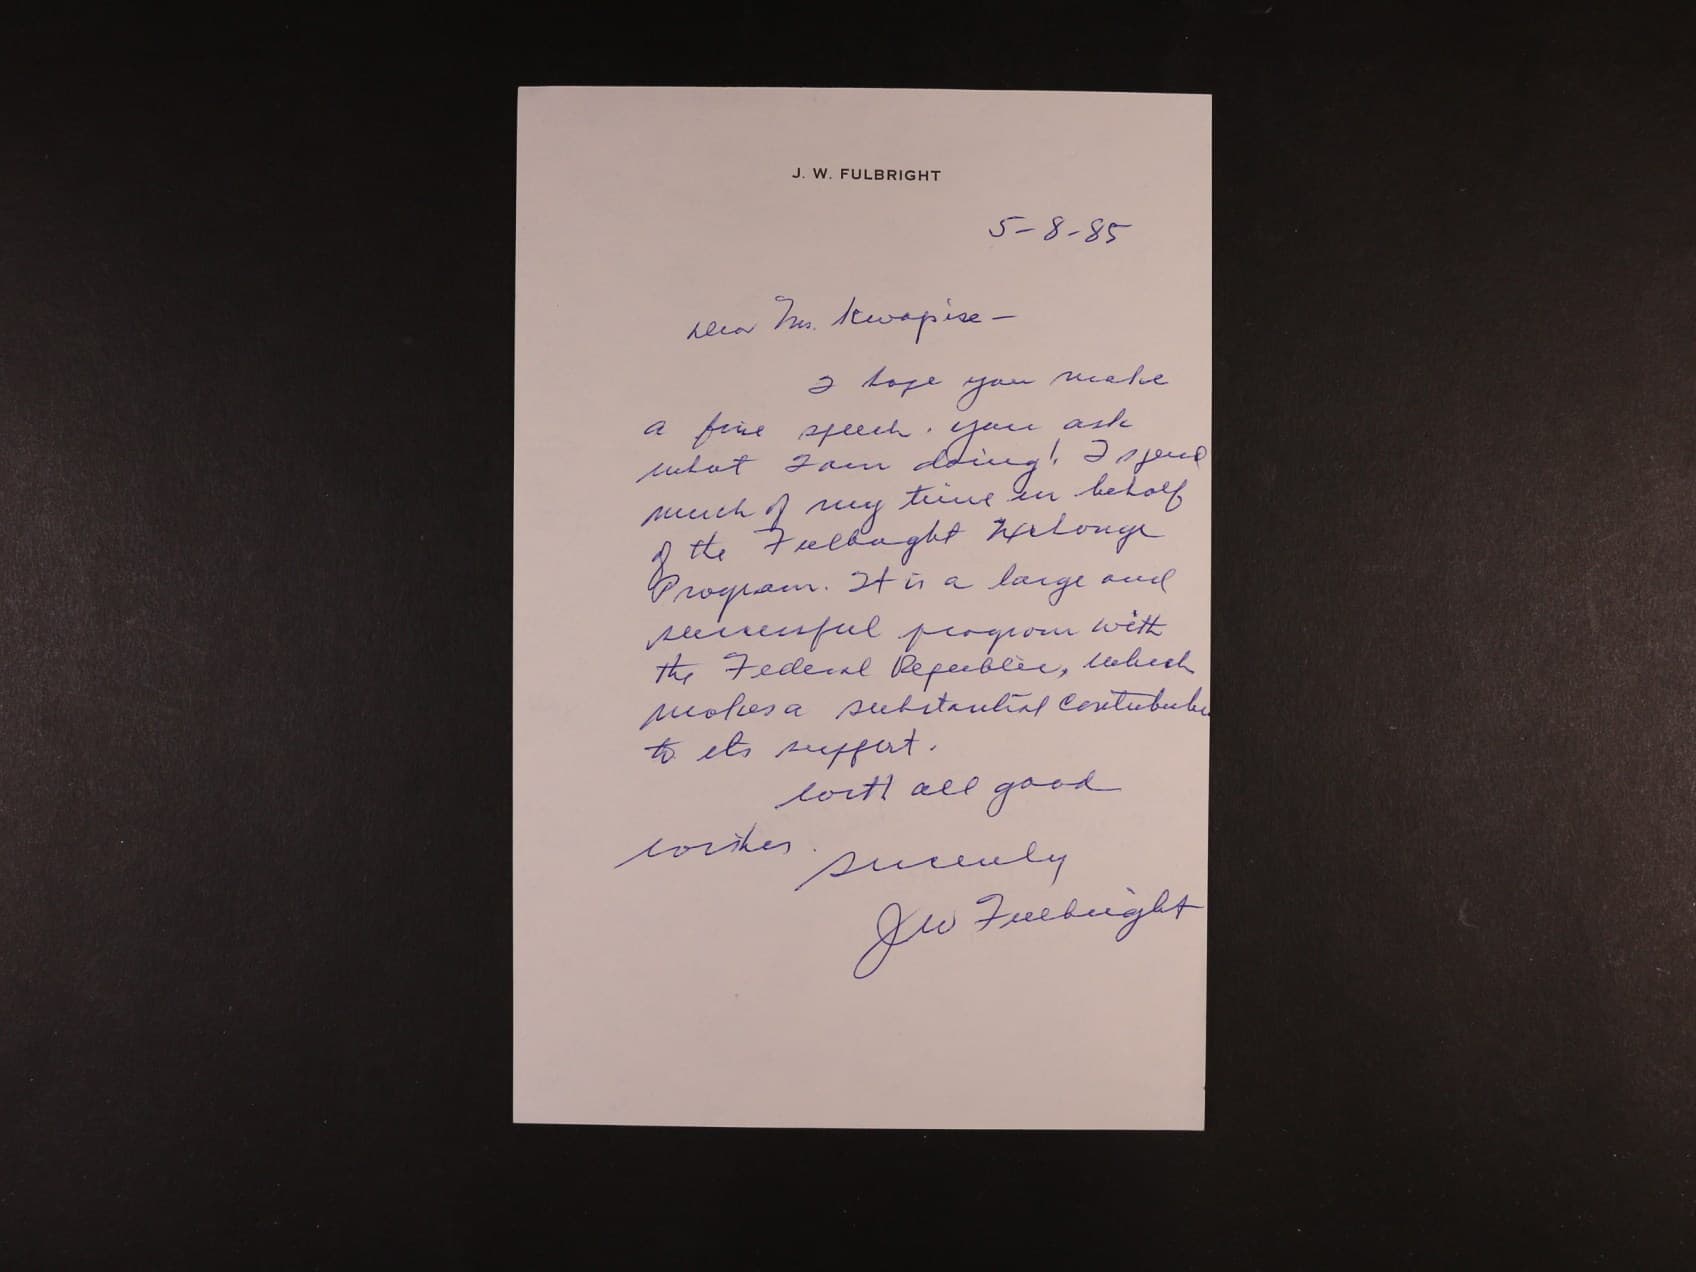 J. W. FULBRIGHT
5-8-85
Dear
I hope you make
a fine speech. you ask
what I am doing! I spend
much of my time in behalf
of the Fulbright Exchange
Program. It is a large and
successful program with
the Federal Republic, which
makes a substantial
to its support.
with all good
wishes.
Sincerely
JW Fulbright